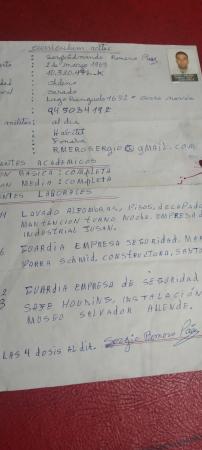 curriculum vitae
: Sergio Armando Romero Páez
: 1 de marzo 1969
: 10.320.
dad : chileno
vil : casado
: Lago
: 945034192
militar : al dia
: Habitat
: Fonasa
: RMEROSERGIO@GMAIL.COM
ANTES ACADEMICOS
ON BASICA: COMPLETA
ON MEDIA: COMPLETA
ENTES LABORALES
LAVADO ALFOMBRAS, PISOS, DELEPADO
MANTENCION TURNO NOCHE. EMPRESA D
INDUSTRIAL SUSAN.
GUARDIA EMPRESA SEGURIDAD. MAR
SCHMID, CONSTRUCTORA, SANTO
2 GUARDIA EMPRESA DE SEGURIDAD
3 SAFE HOLDING, INSTALACIÓN
MUSEO SALVADOR ALLENDE.
LAS 4 DOSIS AL DIA. Sergio Romero Páez